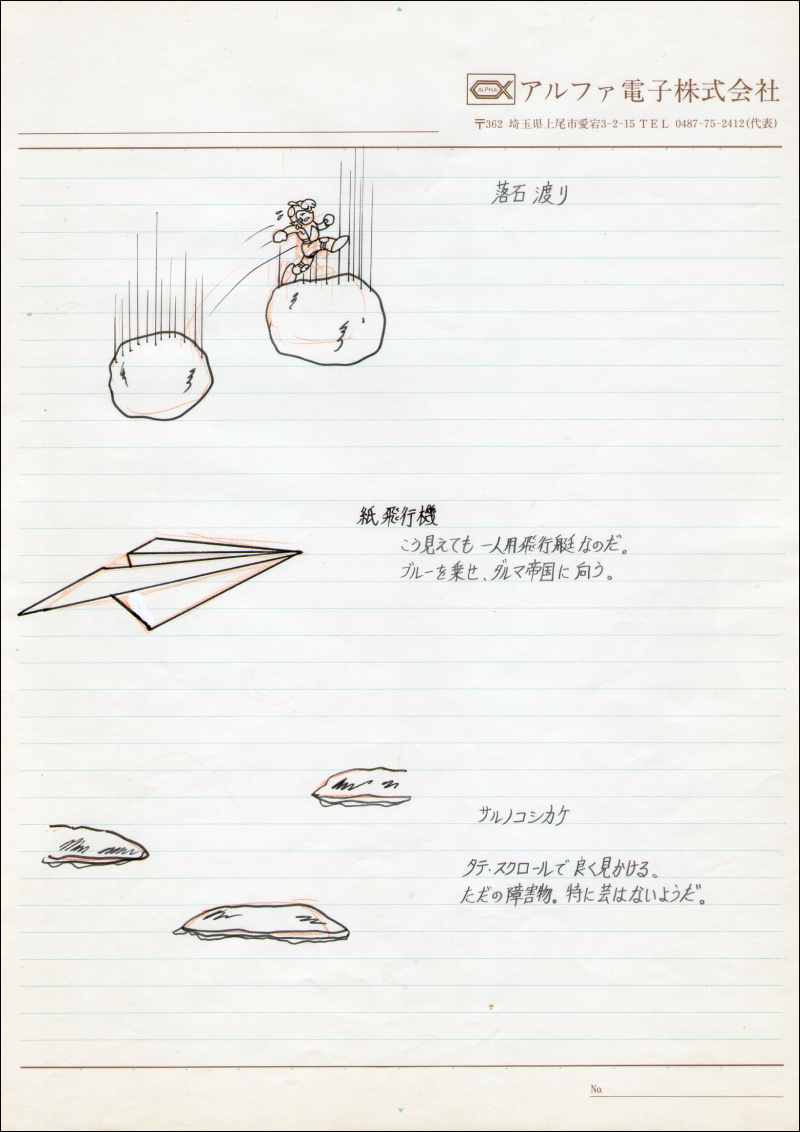 ALPHA
アルファ電子株式会社
〒362 埼玉県上尾市愛宕3-2-15 TEL 0487-75-2412(代表)
落石渡り
紙飛行機
こう見えても一人用飛行艇なのだ。
ブルーを乗せ、ダルマ帝国に向う。
サルノコシカケ
タテ・スクロールで良く見かける。
ただの障害物。特に芸はないようだ。
No.